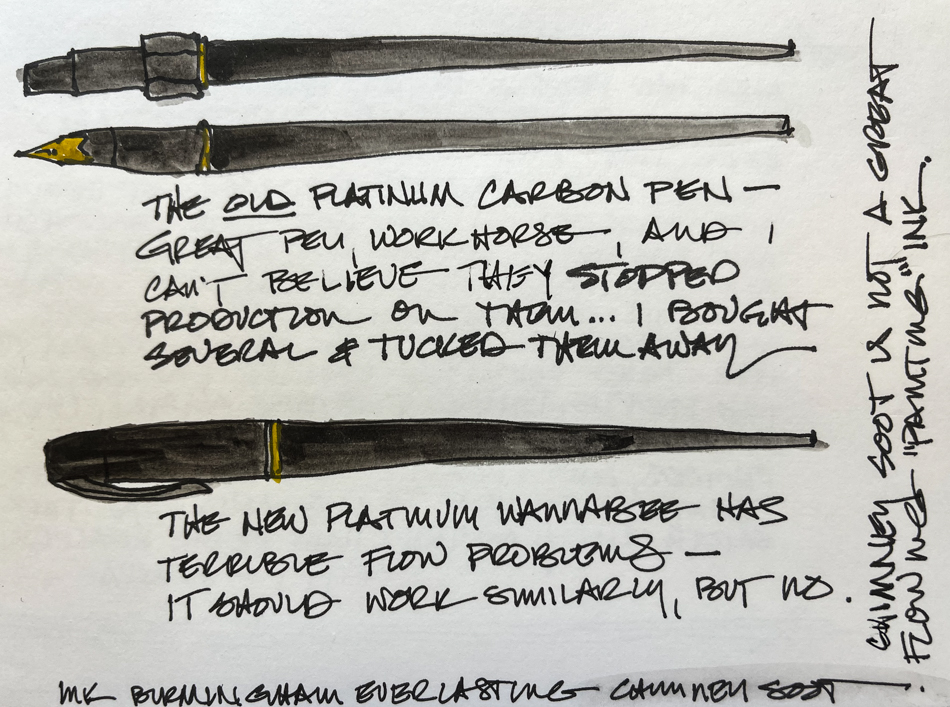 THE OLD PLATINUM CARBON PEN —
GREAT PEN, WORKHORSE, AND I
CAN'T BELIEVE THEY STOPPED
PRODUCTION ON THEM... I BOUGHT
SEVERAL & TUCKED THEM AWAY
THE NEW PLATINUM WANNABEE HAS
TERRIBLE FLOW PROBLEMS —
IT SHOULD WORK SIMILARLY, BUT NO.
MK BURMINGHAM EVERLASTING CHIMNEY SOOT.
CHIMNEY SOOT IS NOT A GREAT
FLOWING "PAINTING" INK.